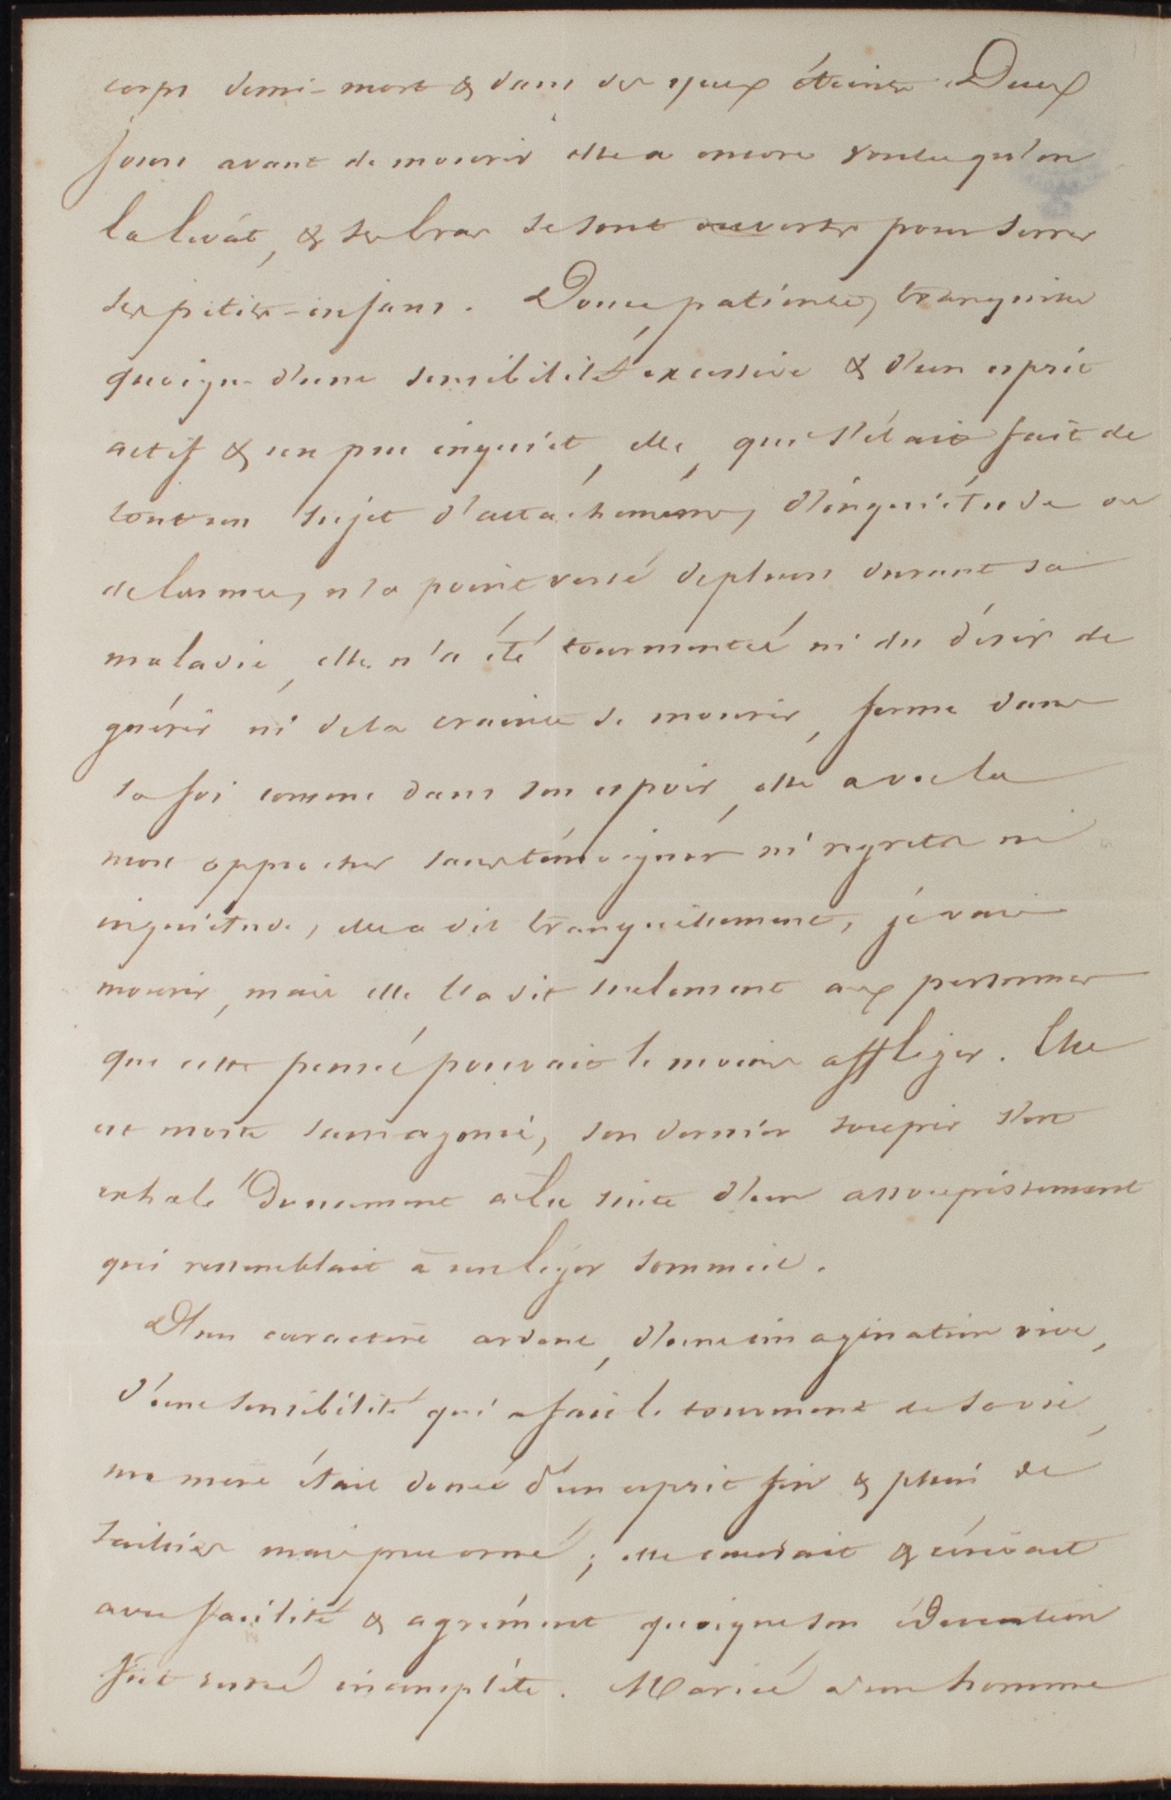 corps demi-mort & dans des yeux éteints. Deux
jours avant de mourir elle a encore voulu qu'on
la levât, & ses bras se sont ouverts pour serrer
ses petits-enfans. Douce, patiente, tranquille
quoique d'une sensibilité excessive & d'un esprit
actif & un peu inquiet, elle, qui s'était fait de
tout un sujet d'attachement, d'inquiétude ou
de larmes, n'a point versé de pleurs durant sa
maladie, elle n'a été tourmentée ni du désir de
guérir ni de la crainte de mourir, ferme dans
sa foi comme dans son espoir, elle a vu la
mort approcher sans témoigner ni regrets ni
inquiétude, elle a dit tranquillement, je vais
mourir, mais elle l'a dit seulement aux personnes
que cette pensée pouvait le moins affliger. Elle
est morte sans agonie, son dernier soupir s'est
exhalé doucement à la suite d'un assoupissement
qui ressemblait à un léger sommeil.
D'un caractère ardent, d'une imagination vive,
d'une sensibilité qui a fait le tourment de sa vie,
ma mère était douée d'un esprit fin & plein de
saillies mais peu orné; elle causait & écrivait
avec facilité & agrément quoique son éducation
fut restée incomplète. Mariée à un homme